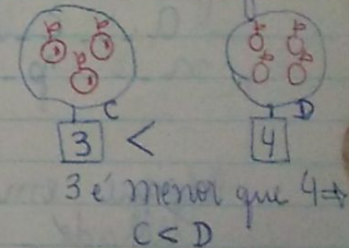 C D
3 < 4
3 é menor que 4 →
C < D